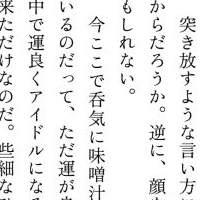 突き放すような言い方に
からだろうか。逆に、顔
もしれない。
今ここで呑気に味噌汁
いるのだって、ただ運が
中で運良くアイドルにな
来ただけなのだ。些細な